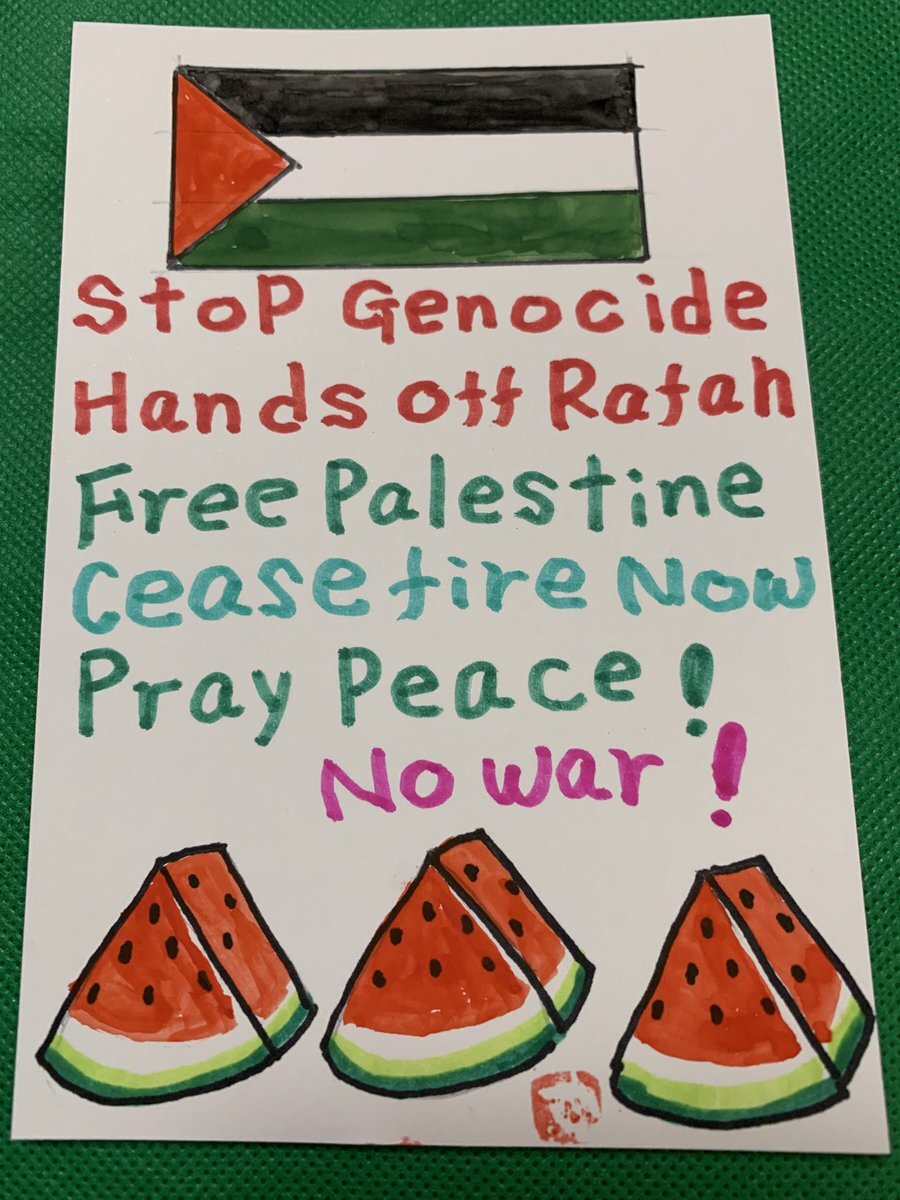 Stop Genocide
Hands off Rafah
Free Palestine
Ceasefire Now
Pray Peace!
No war!